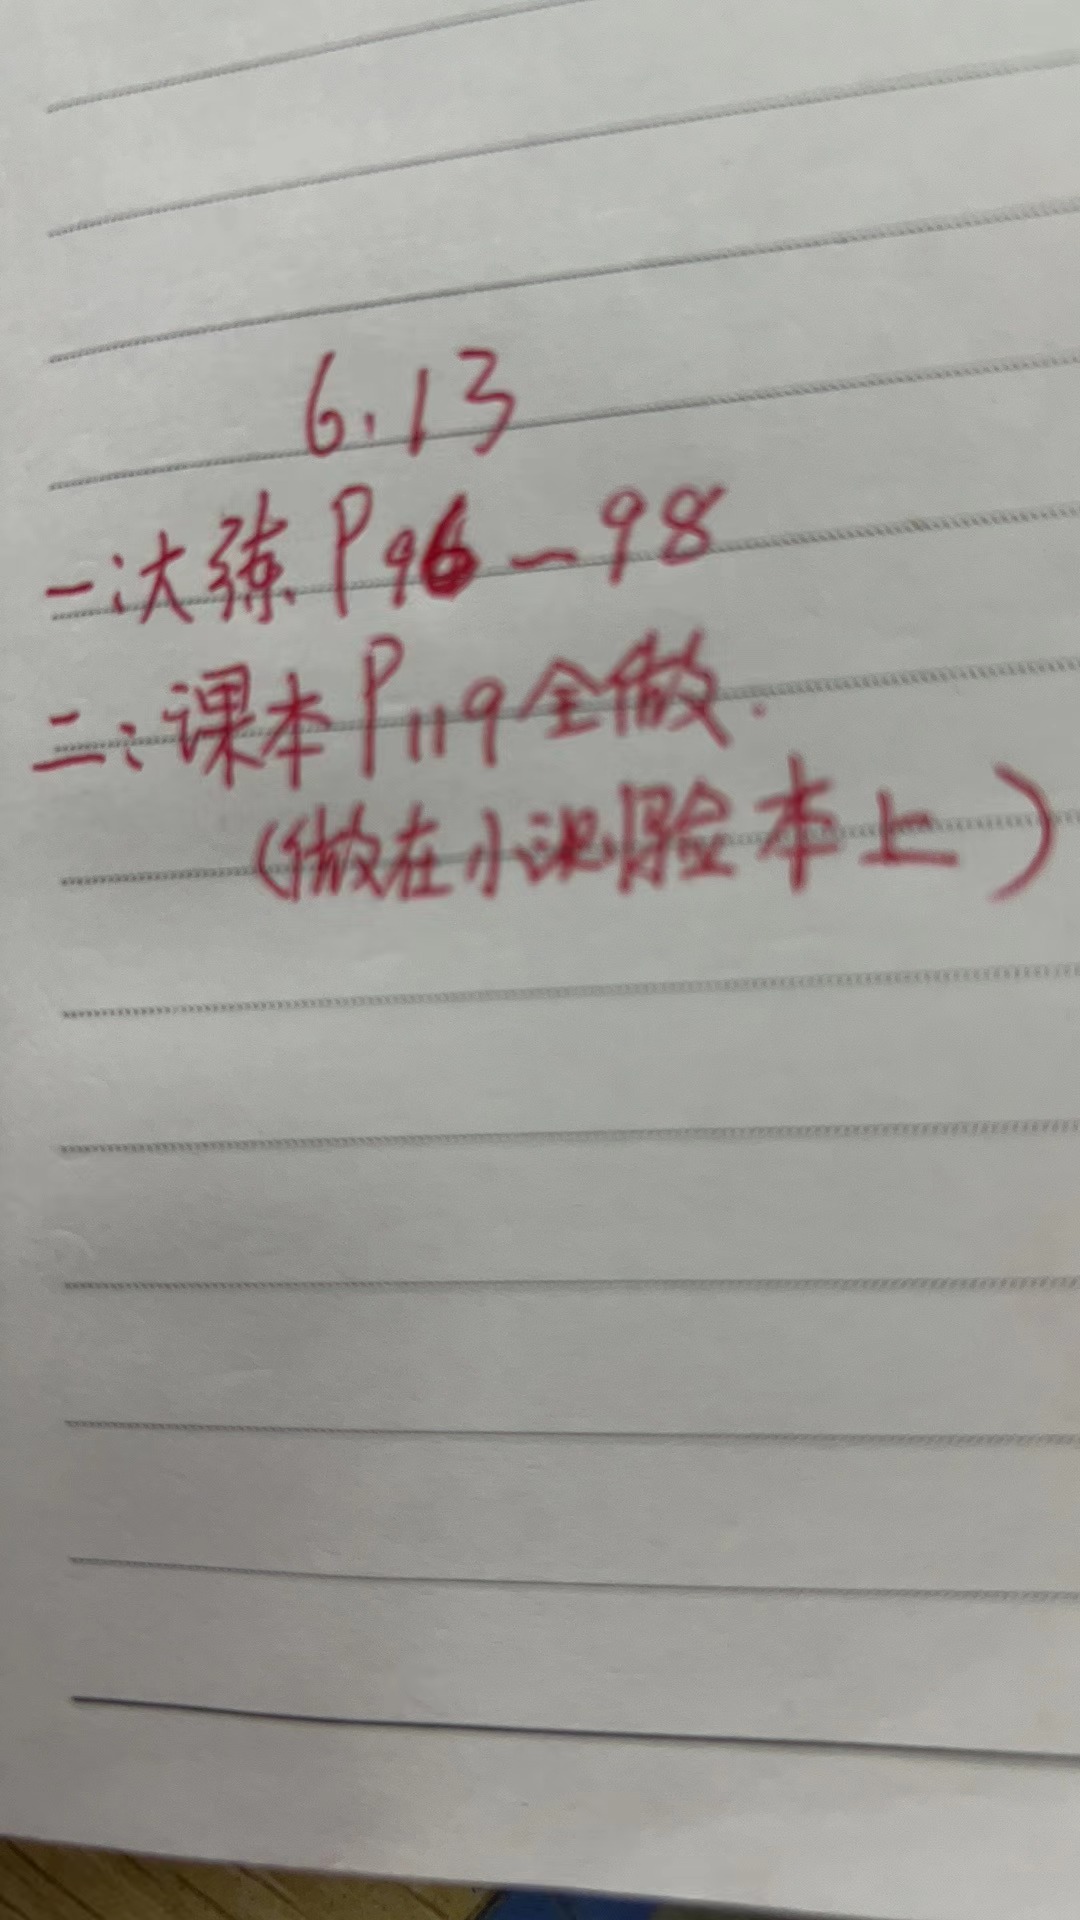 6.13
一:大练P96—98
二:课本P119全做.
(做在小测验本上)